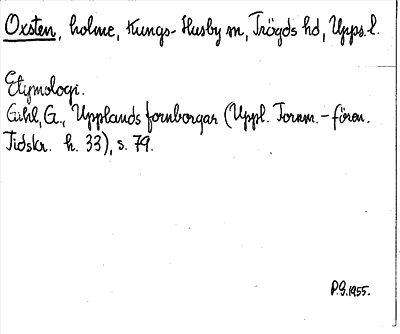 Oxsten, holme, Kungs-Husby sn, Trögds hd, Upps.l.
Etymologi.
Gihl, G., Upplands fornborgar (Uppl. Fornm.-fören.
Tidskr. h. 33), s. 79.
P.G. 1955.